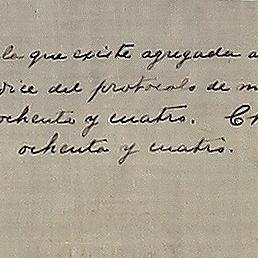 la que existe agregada a
dice del protocolo de m
ochenta y cuatro. Ch
ochenta y cuatro.